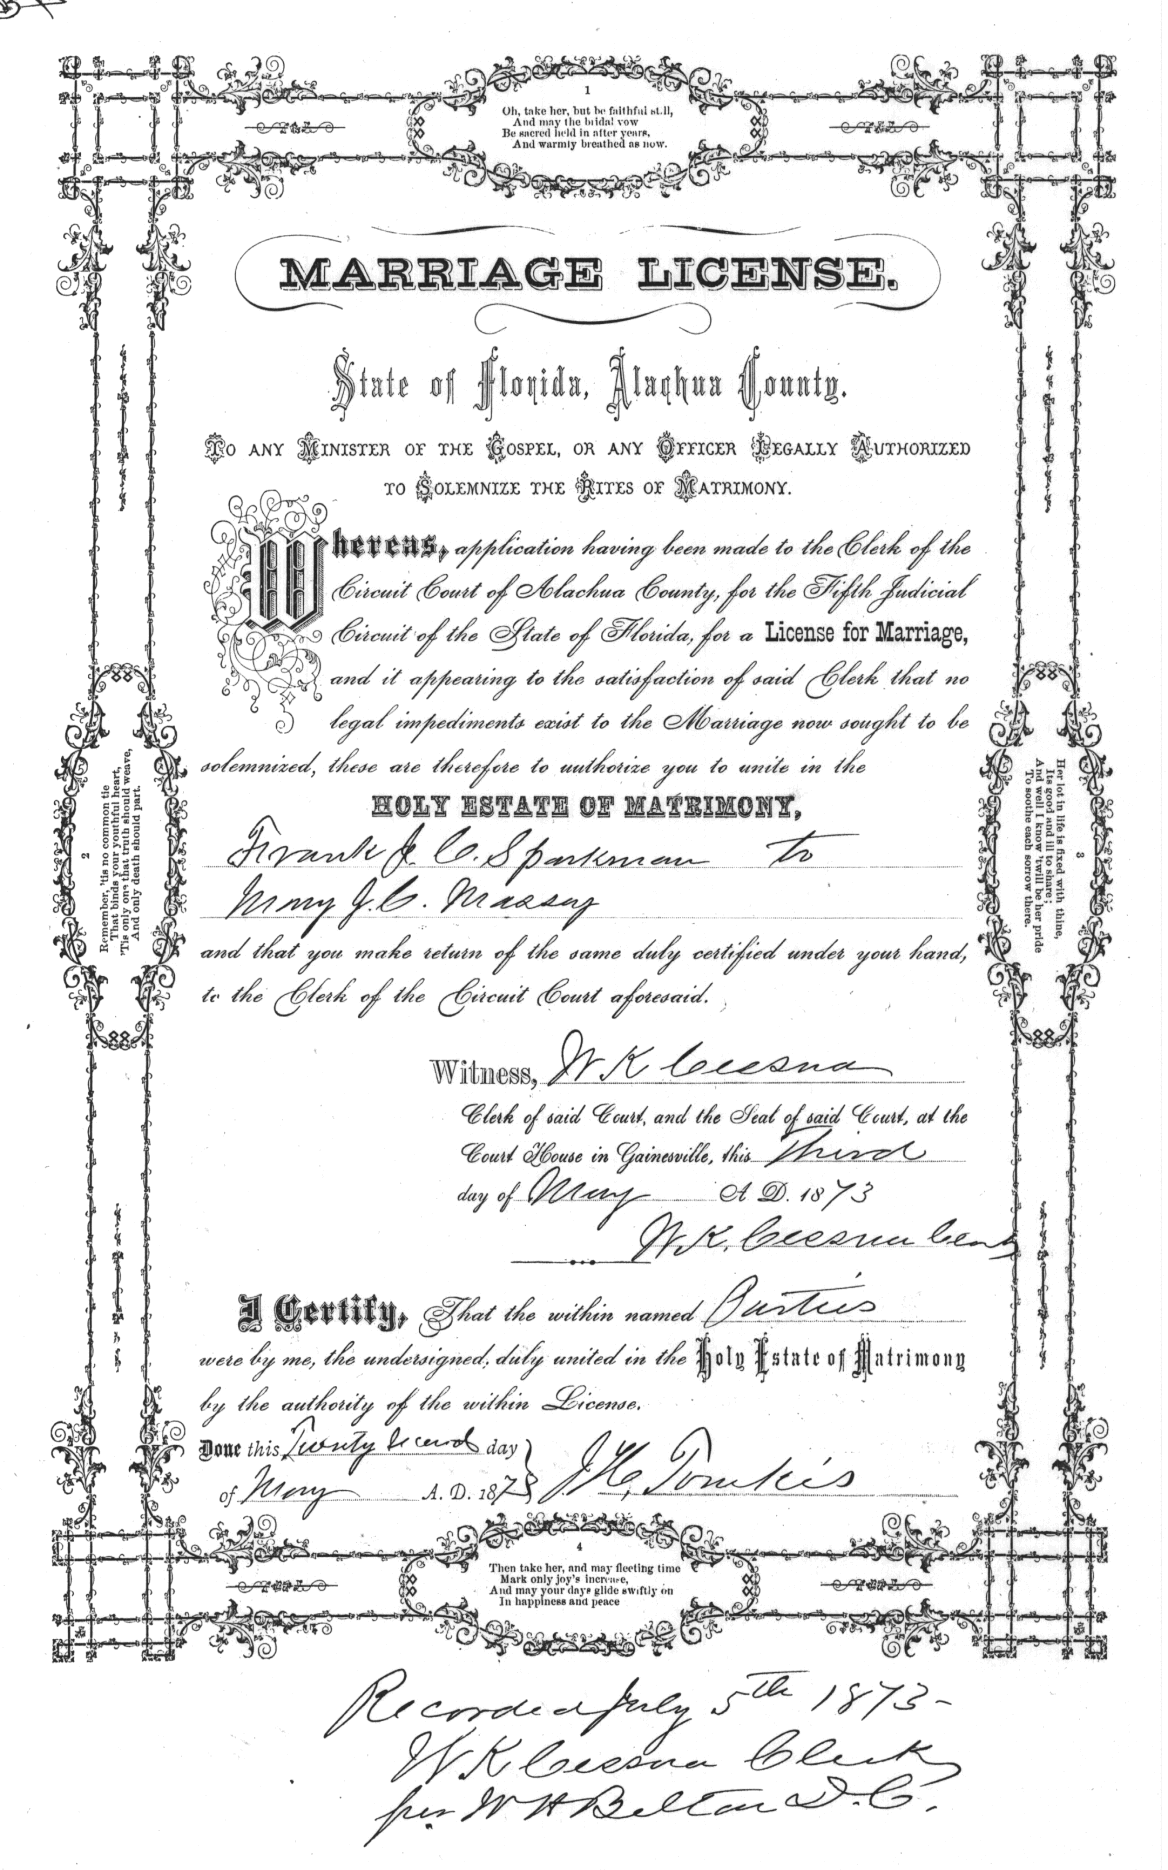 1
Oh, take her, but be faithful still,
And may the bridal vow
Be sacred held in after years,
And warmly breathed as now.
MARRIAGE LICENSE.
State of Florida, Alachua County.
TO ANY MINISTER OF THE GOSPEL, OR ANY OFFICER LEGALLY AUTHORIZED
TO SOLEMNIZE THE RITES OF MATRIMONY.
Whereas, application having been made to the Clerk of the
Circuit Court of Alachua County, for the Fifth Judicial
Circuit of the State of Florida, for a License for Marriage,
and it appearing to the satisfaction of said Clerk that no
legal impediments exist to the Marriage now sought to be
solemnized, these are therefore to authorize you to unite in the
HOLY ESTATE OF MATRIMONY,
Frank J. C. Sparkman to
Mary J. C. Massey
and that you make return of the same duly certified under your hand,
to the Clerk of the Circuit Court aforesaid.
Witness, W K Cessna
Clerk of said Court, and the Seal of said Court, at the
Court House in Gainesville, this Third
day of May A. D. 1873
W. K. Cessna Clerk
I Certify, That the within named Parties
were by me, the undersigned, duly united in the Holy Estate of Matrimony
by the authority of the within License.
Done this Twenty Second day
of May A. D. 1873
J. H. Tomkies
2
Remember, 'tis no common tie
That binds your youthful heart,
'Tis only one that truth should weave,
And only death should part.
3
Her lot in life is fixed with thine,
Its good and ill to share;
And well I know 'twill be her pride
To soothe each sorrow there.
4
Then take her, and may fleeting time
Mark only joy's increase,
And may your days glide swiftly on
In happiness and peace
Recorded July 5th 1873-
W K Cessna Clerk
per W H Belton D. C.